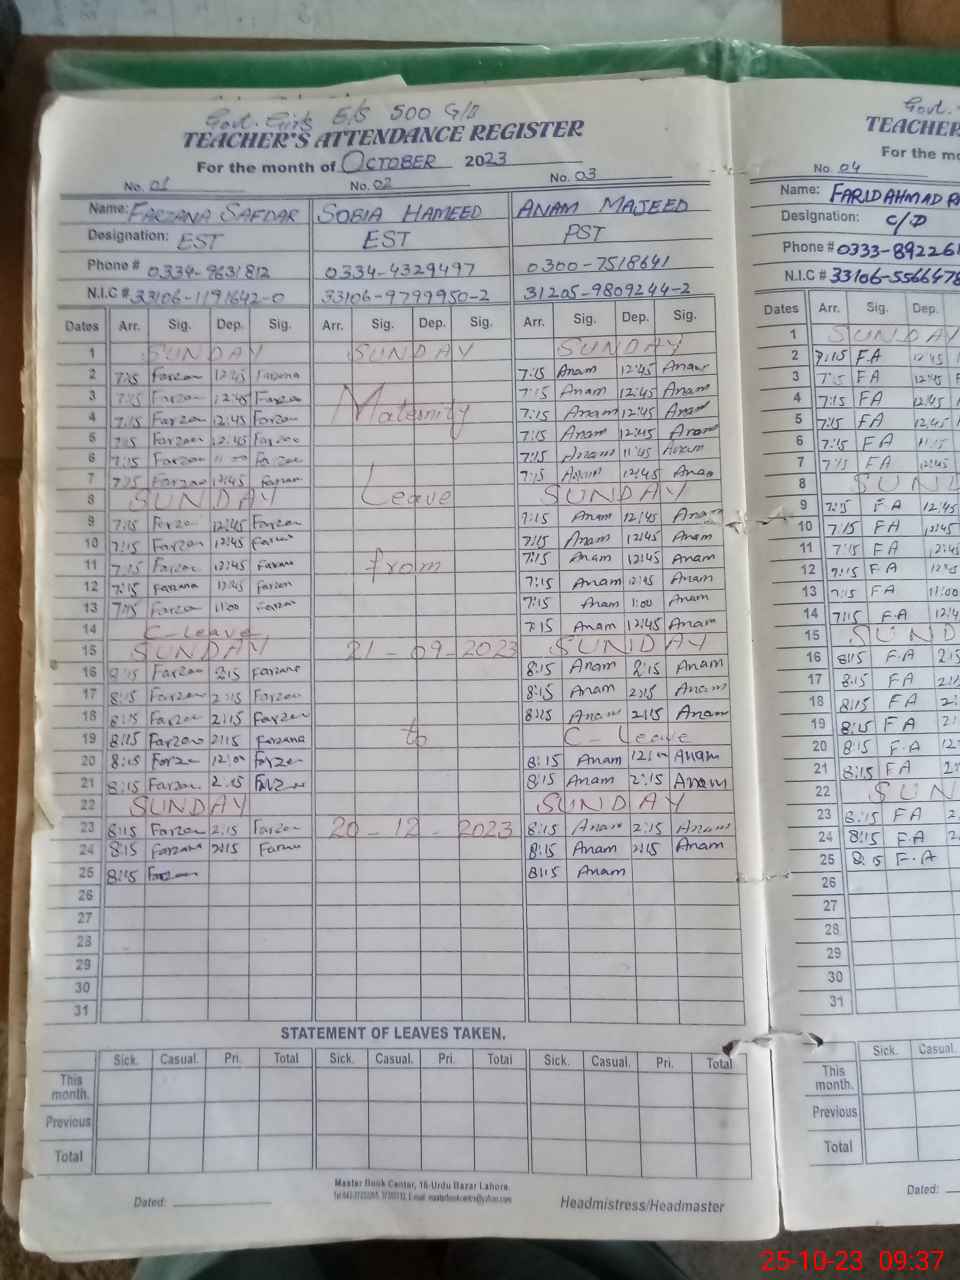 Govt. Girls E/S 500 G/B
TEACHER'S ATTENDANCE REGISTER
For the month of OCTOBER 2023
No. 01 No. 02 No. 03
Name: FARZANA SAFDAR SOBIA HAMEED ANAM MAJEED
Designation: EST EST PST
Phone # 0334-9631812 0334-4329497 0300-7518641
N.I.C # 33106-1191642-0 33106-9799950-2 31205-9809244-2
Dates Arr. Sig. Dep. Sig. Arr. Sig. Dep. Sig. Arr. Sig. Dep. Sig.
1 SUNDAY SUNDAY SUNDAY
2 7:15 Farzan 12:45 Farzana 7:15 Anam 12:45 Anam
3 7:15 Farzan 12:45 Farzan 7:15 Anam 12:45 Anam
4 7:15 Farzan 12:45 Farzan Maternity 7:15 Anam 12:45 Anam
5 7:15 Farzan 12:45 Farzan 7:15 Anam 12:45 Anam
6 7:15 Farzan 11:00 Farzan 7:15 Anam 11:45 Anam
7 7:15 Farzan 12:45 Farzan 7:15 Anam 12:45 Anam
8 SUNDAY Leave SUNDAY
9 7:15 Farzan 12:45 Farzan 7:15 Anam 12:45 Anam
10 7:15 Farzan 12:45 Farzan 7:15 Anam 12:45 Anam
11 7:15 Farzan 12:45 Farzan from 7:15 Anam 12:45 Anam
12 7:15 Farzana 12:45 Farzan 7:15 Anam 12:45 Anam
13 7:15 Farzan 11:00 Farzan 7:15 Anam 11:00 Anam
14 C-Leave 7:15 Anam 12:45 Anam
15 SUNDAY 21-09-2023 SUNDAY
16 8:15 Farzan 2:15 Farzana 8:15 Anam 2:15 Anam
17 8:15 Farzan 2:15 Farzan 8:15 Anam 2:15 Anam
18 8:15 Farzan 2:15 Farzan 8:15 Anam 2:15 Anam
19 8:15 Farzan 2:15 Farzana to C-Leave
20 8:15 Farzan 12:00 Farzan 8:15 Anam 12:00 Anam
21 8:15 Farzan 2:15 Farzan 8:15 Anam 2:15 Anam
22 SUNDAY SUNDAY
23 8:15 Farzan 2:15 Farzan 20-12-2023 8:15 Anam 2:15 Anam
24 8:15 Farzana 2:15 Farzan 8:15 Anam 2:15 Anam
25 8:15 Farzan 8:15 Anam
26
27
28
29
30
31
STATEMENT OF LEAVES TAKEN.
Sick. Casual. Pri. Total Sick. Casual. Pri. Total Sick. Casual. Pri. Total
This month.
Previous
Total
Master Book Center, 16-Urdu Bazar Lahore.
Dated: Headmistress/Headmaster
Govt.
TEACHER
For the mo
No. 04
Name: FARID AHMAD
Designation: C/D
Phone # 0333-892261
N.I.C # 33106-5566478
Dates Arr. Sig. Dep.
1 SUNDAY
2 7:15 F A 12:45
3 7:15 F A 12:45
4 7:15 F A 12:45
5 7:15 F A 12:45
6 7:15 F A 11:15
7 7:15 F A 12:45
8 SUND
9 7:15 F A 12:45
10 7:15 F A 12:45
11 7:15 F A 12:45
12 7:15 F A 12:45
13 7:15 F A 11:00
14 7:15 F.A 12:4
15 SUND
16 8:15 F.A 2:15
17 8:15 F A 2:1
18 8:15 F A 2:
19 8:15 F A 2:
20 8:15 F.A 12:
21 8:15 F A 2:
22 SUN
23 8:15 F A 2
24 8:15 F.A 2
25 8:15 F.A
26
27
28
29
30
31
Sick. Casual.
This month.
Previous
Total
Dated:
25-10-23 09:37